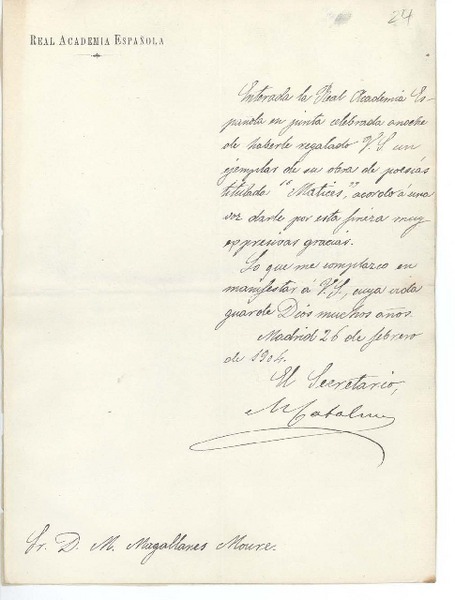 24
REAL ACADEMIA ESPAÑOLA
Enterada la Real Academia Es-
pañola en junta celebrada anoche
de haberle regalado V.S un
ejemplar de su obra de poesías
titulada "Matices", acordó á una
voz darle por esta fineza muy
expresivas gracias.
Lo que me complazco en
manifestar á V.S, cuya vida
guarde Dios muchos años.
Madrid 26 de febrero
de 1904.
El Secretario,
M Catalina
Sr. D. M. Magallanes Moure.